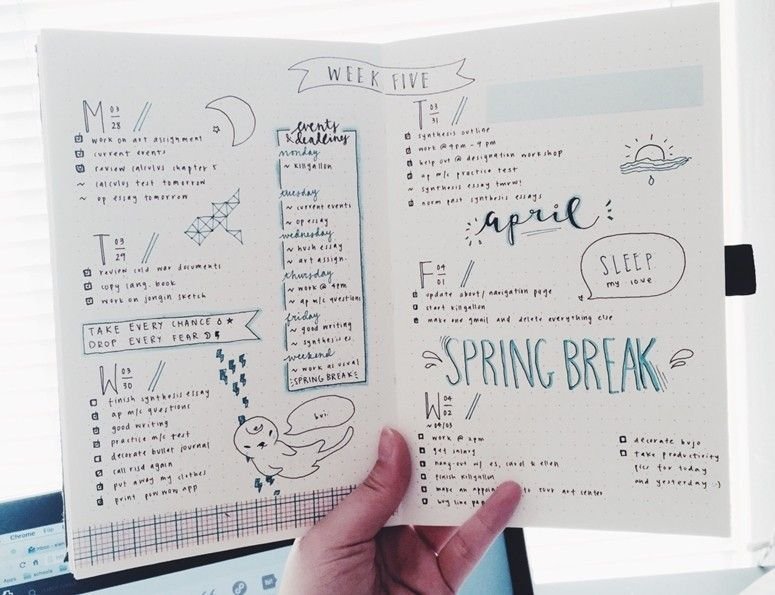 WEEK FIVE
M 03
28
work on art assignment
current events
review calculus chapter 5
~ calculus test tomorrow
~ op essay tomorrow
T 03
29
review cold war documents
copy lang. book
work on jongin sketch
TAKE EVERY CHANCE
DROP EVERY FEAR
W 03
30
finish synthesis essay
ap m/c questions
good writing
practice m/c test
decorate bullet journal
call risd again
put away my clothes
print pow wow app
events
& deadlines
monday
~ killgallon
tuesday
~ current events
~ op essay
wednesday
~ hush essay
~ art assign.
thursday
~ work @ 4pm
~ ap m/c questions
friday
~ good writing
~ synthesis es.
weekend
~ work as usual
SPRING BREAK
bui.
T 03
31
synthesis outline
work @ 4pm - 9pm
help out @ designation workshop
ap m/c practice test
~ synthesis essay tmrw!
norm past synthesis essays
april
F 04
01
update about/navigation page
start killgallon
make one gmail and delete everything else
SLEEP
my love
SPRING BREAK
W 04
02
~ 04/03
work @ 2pm
get salary
hang-out w/ es, carol & ellen
finish killgallon
make an to tour art center
buy line
decorate bujo
take productivity
pics for today
and yesterday :)
Chrome File
Apps schools